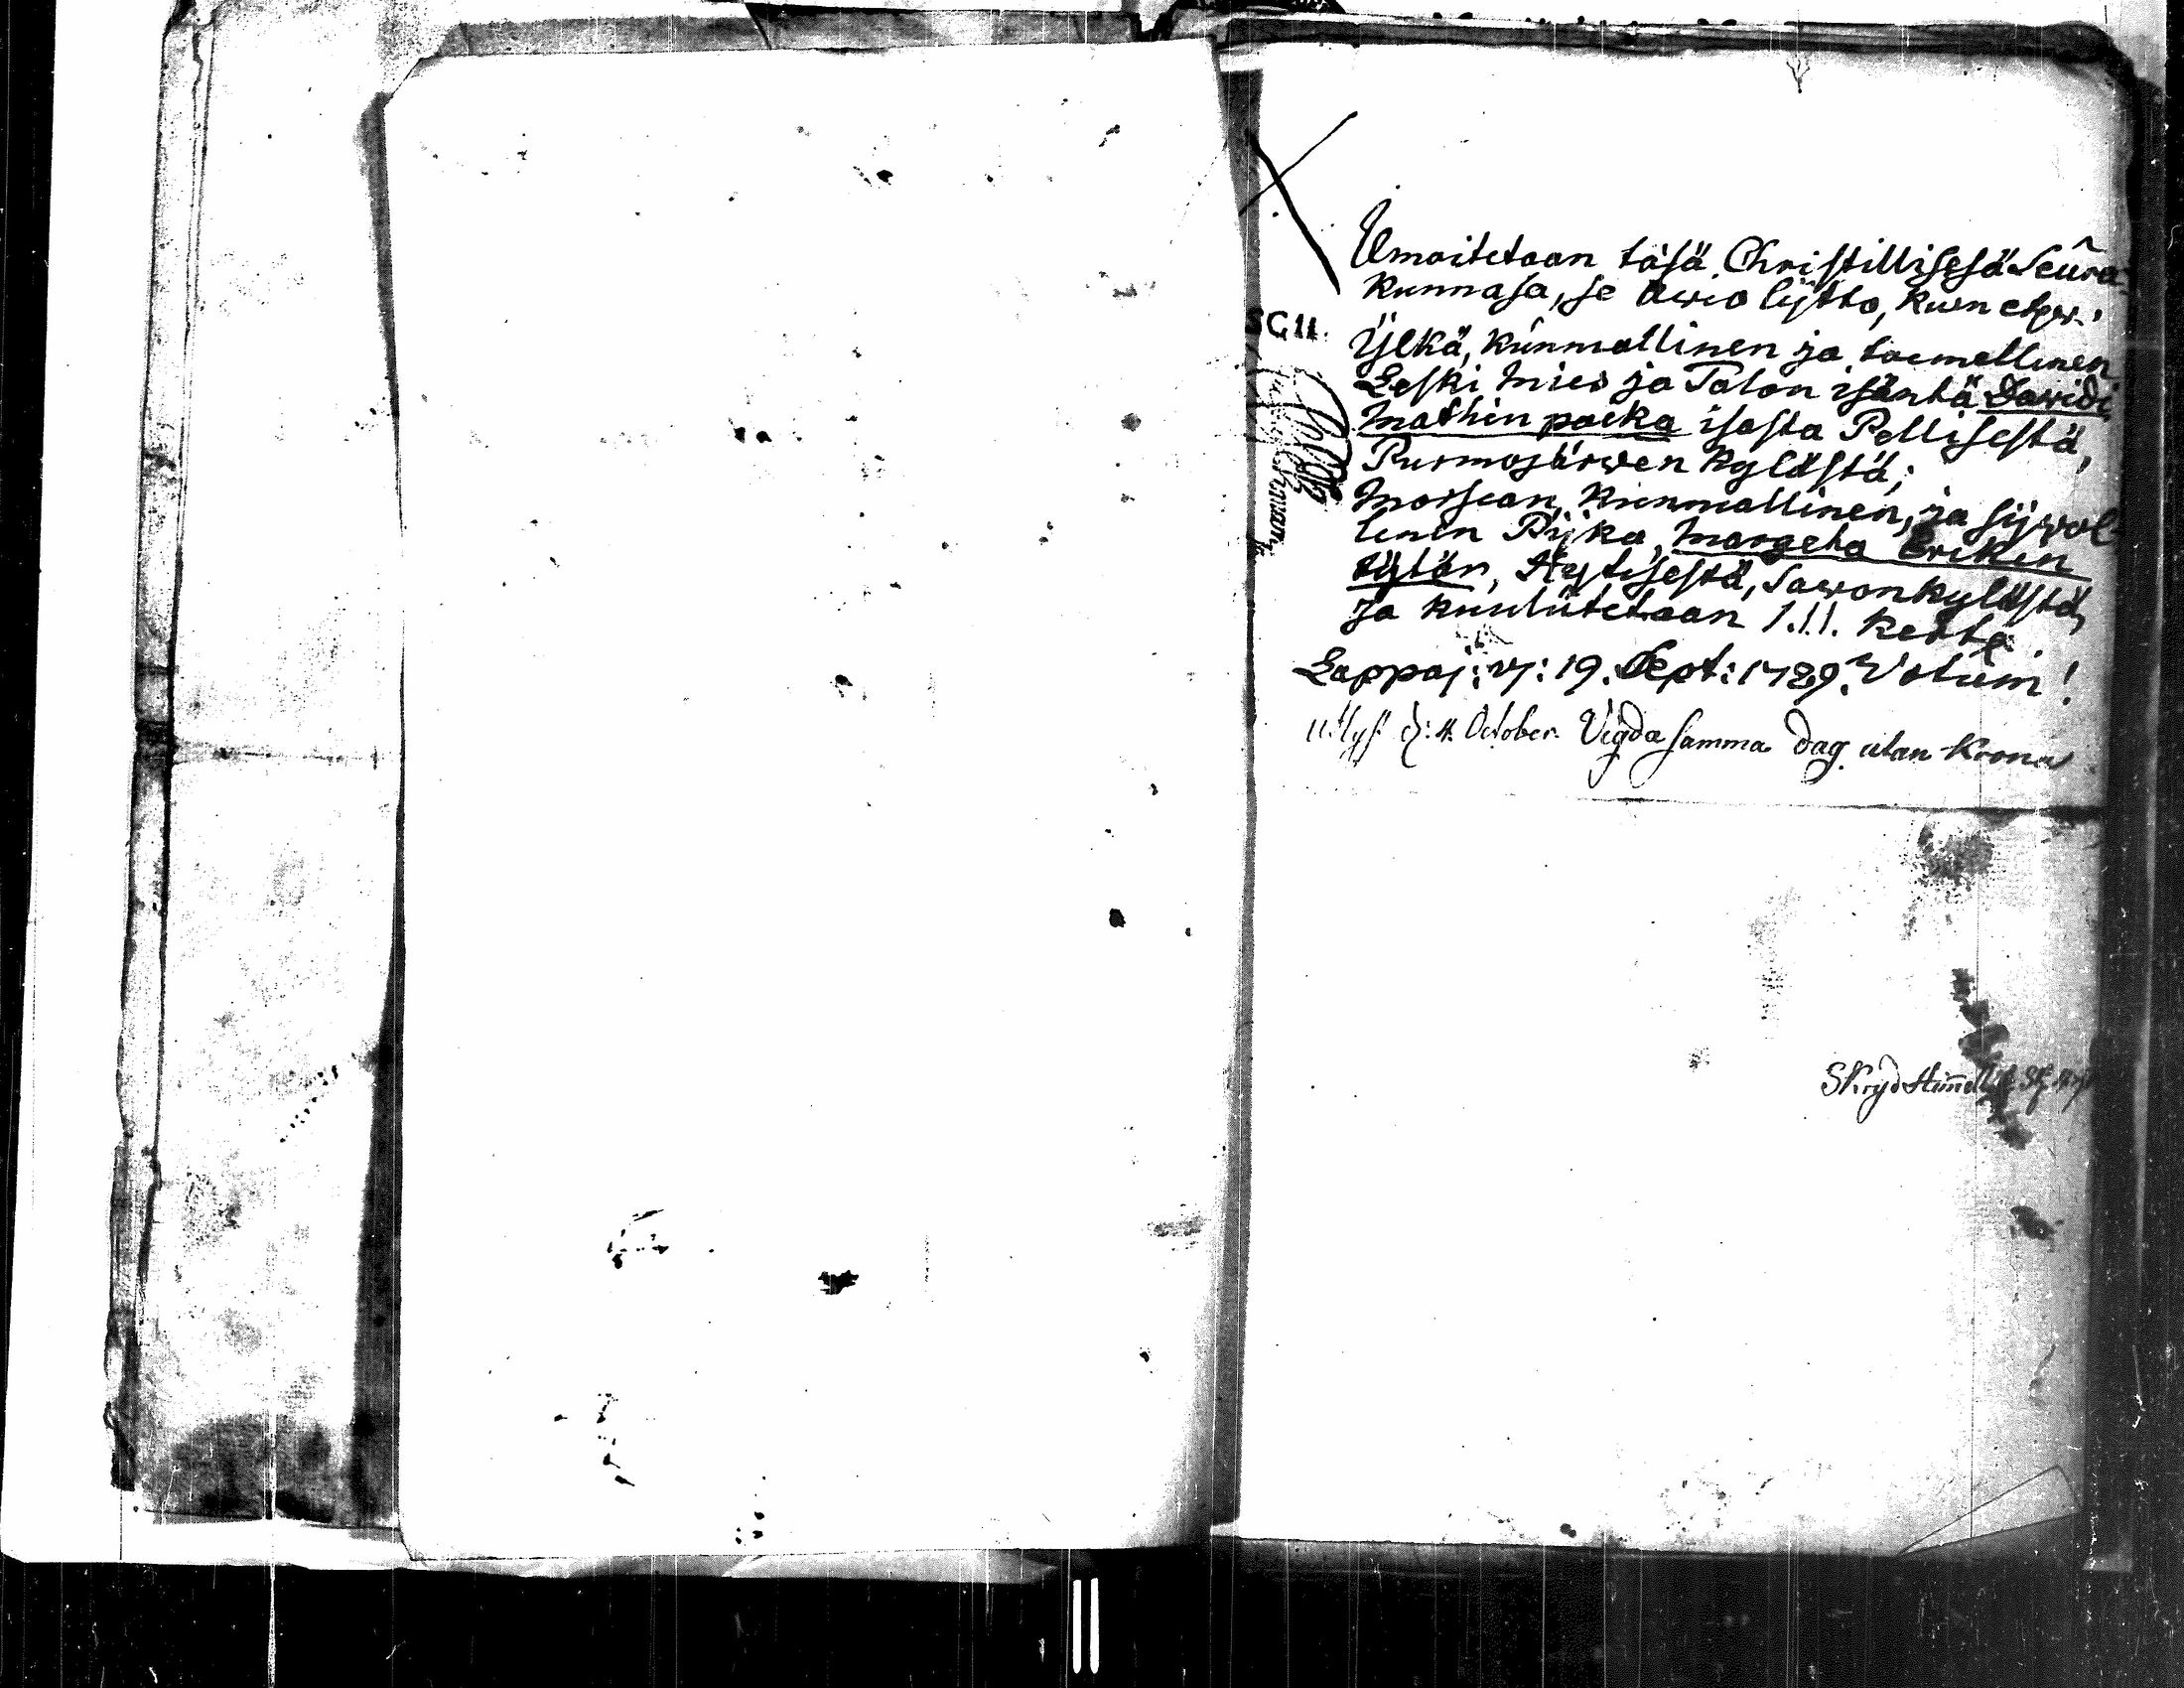 Ilmoitetaan täsä Christillisesä Seura-
kunnasa, se Awio lijtto, kuin etzi:
Ylkä, kunniallinen ja toimellinen
Leski Mies ja Talon isäntä Dawidi
Mathin poika isosta Pellisestä,
Purmojärwen kylästä;
Morsian, kunniallinen, ja sijwol-
linen Pijka, Margeta Erikin
tytär, Hytisestä, Sawonkylästä,
ja kuulutetaan 1.!.!. kerta.
Lappaj: 19. Sept: 1789. Votum!
utlyst d: 4. October. Vigda samma dag utan Krona
SG11.
Skryd